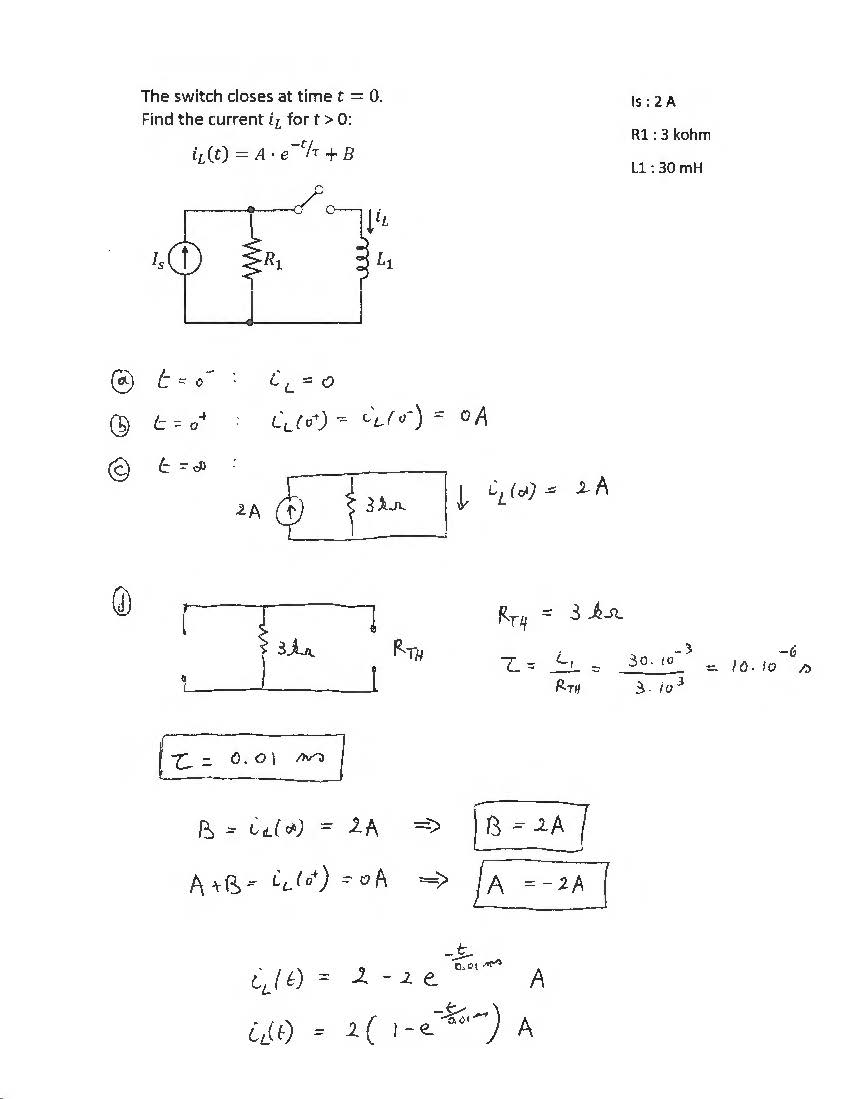 The switch closes at time t = 0.
Find the current i_L for t > 0:
i_L(t) = A · e^{-t/τ} + B
Is : 2 A
R1 : 3 kohm
L1 : 30 mH
I_s
R_1
i_L
L_1
(a) t = 0^- : i_L = 0
(b) t = 0^+ : i_L(0^+) = i_L(0^-) = 0A
(c) t = ∞ :
2A
3kΩ
i_L(∞) = 2A
(d)
3kΩ
R_TH
R_TH = 3 kΩ
τ = L_1/R_TH = 30·10^{-3}/3·10^3 = 10·10^{-6} s
τ = 0.01 ms
B = i_L(∞) = 2A ⇒ B = 2A
A + B = i_L(0^+) = 0A ⇒ A = -2A
i_L(t) = 2 - 2 e^{-t/0.01 ms} A
i_L(t) = 2( 1 - e^{-t/0.01 ms} ) A